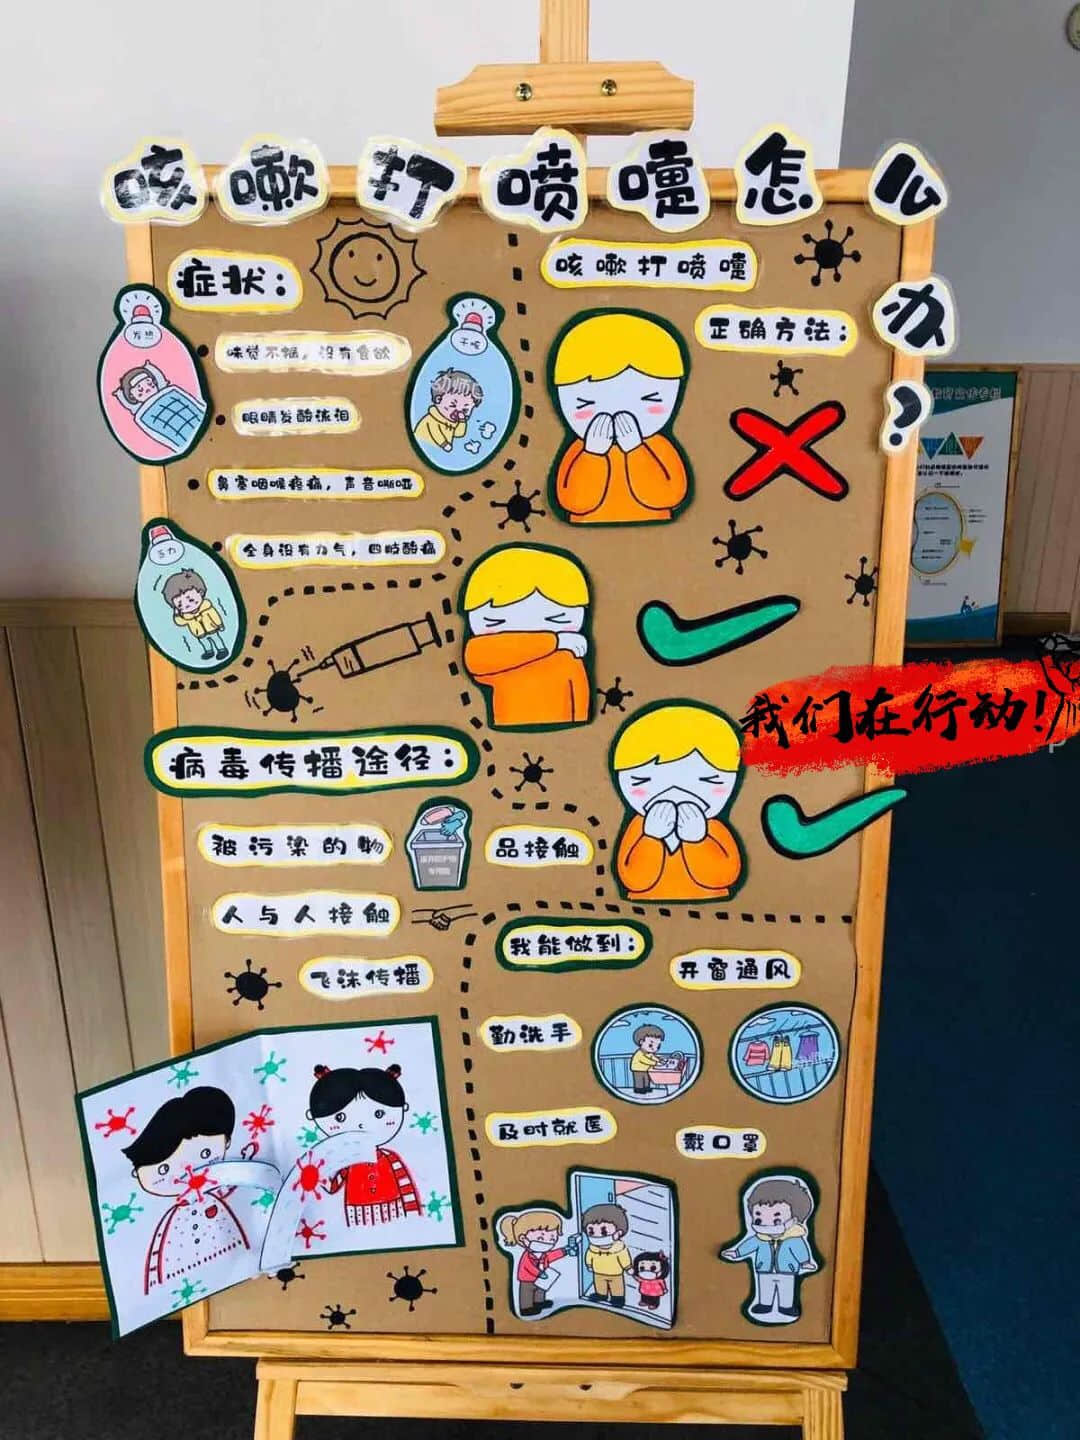 咳嗽打喷嚏怎么办?
症状:
发热
味觉不振,没有食欲
干咳
眼睛发酸流泪
鼻塞咽喉疼痛,声音嘶哑
乏力
全身没有力气,四肢酸痛
咳嗽打喷嚏
正确方法:
我们在行动!
病毒传播途径:
被污染的物
品接触
人与人接触
飞沫传播
我能做到:
开窗通风
勤洗手
及时就医
戴口罩